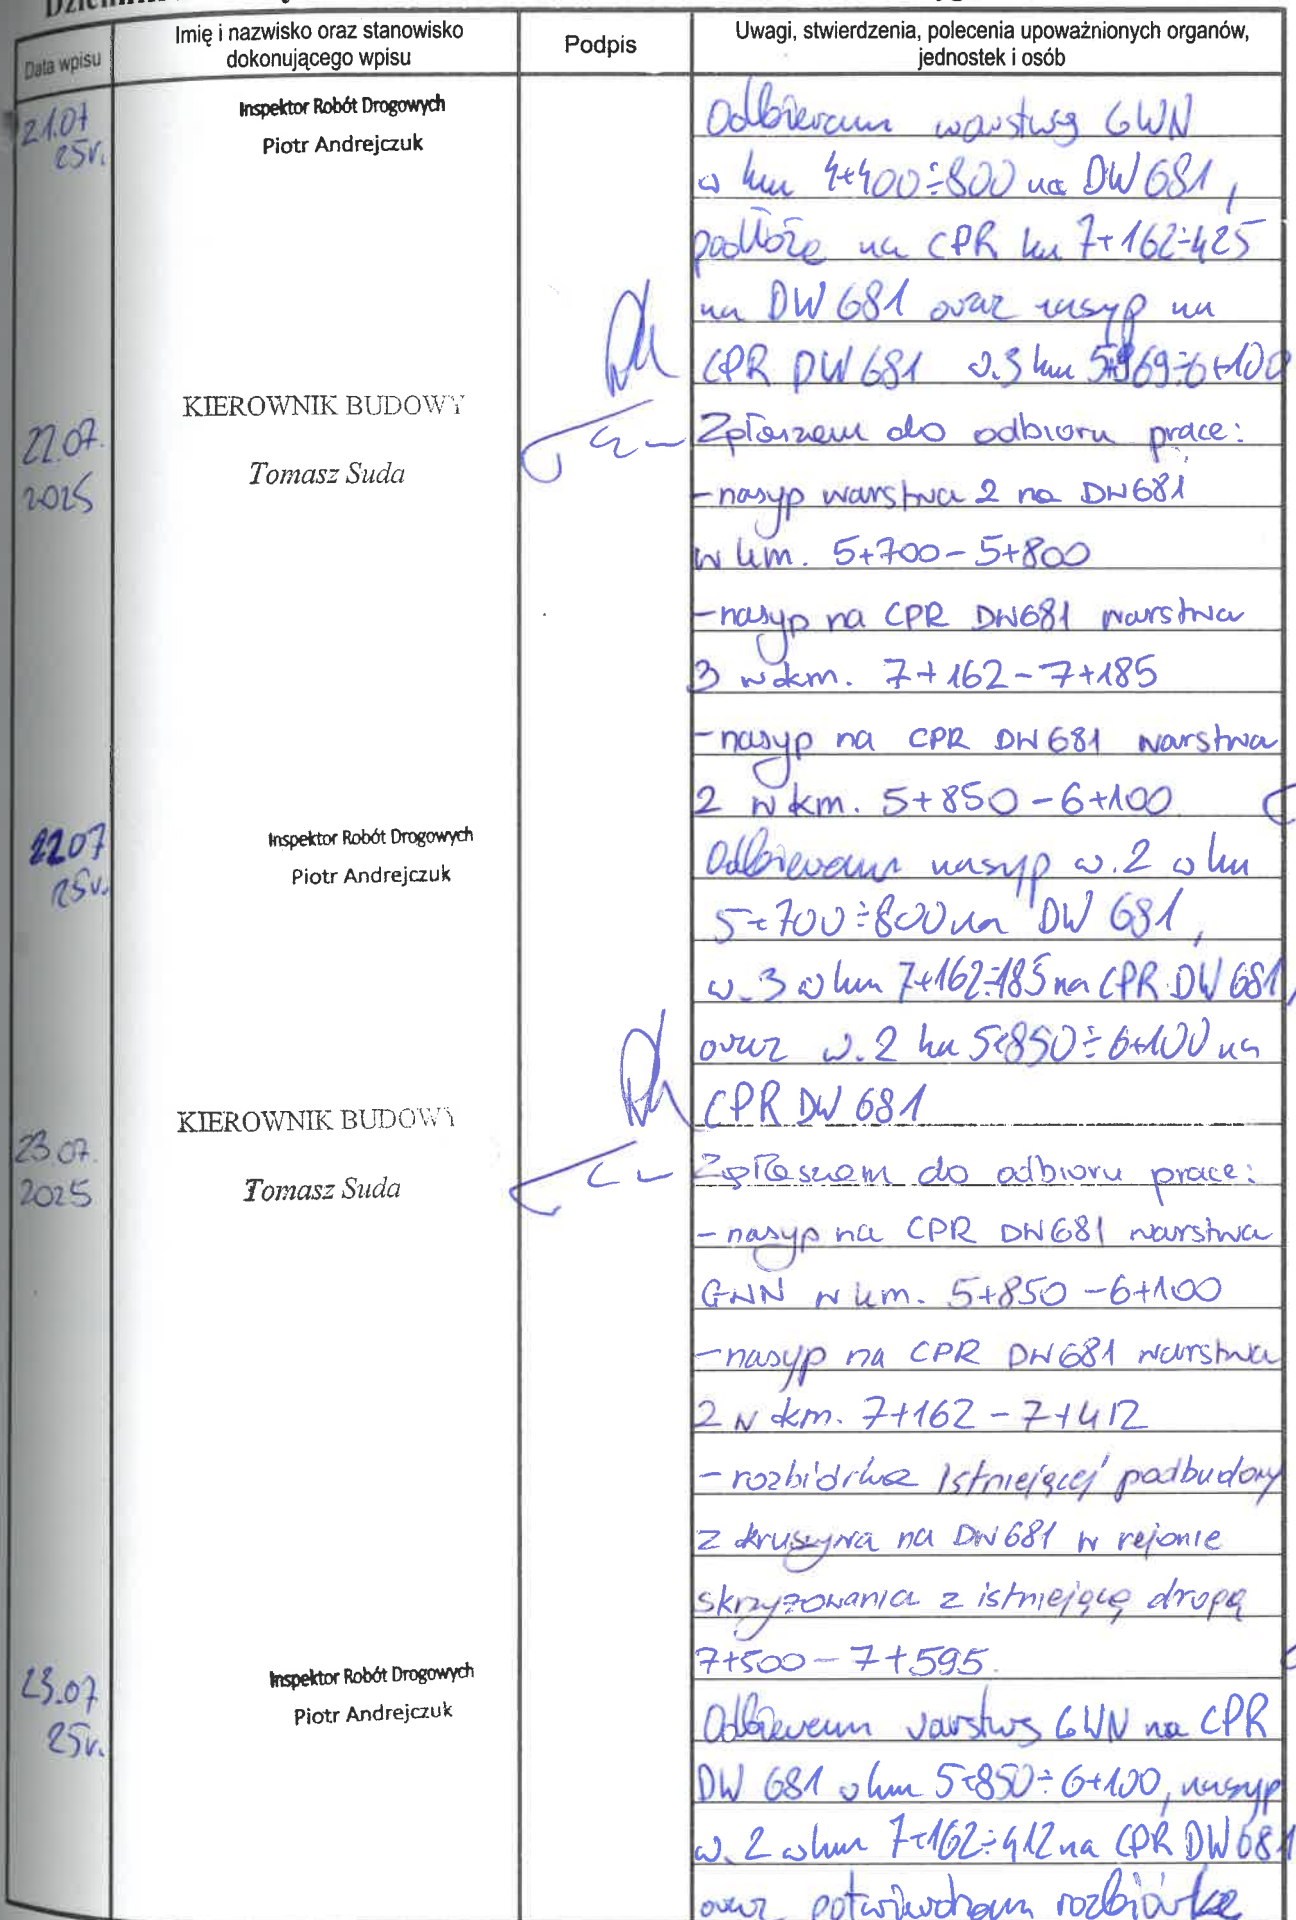 Data wpisu
Imię i nazwisko oraz stanowisko
dokonującego wpisu
Podpis
Uwagi, stwierdzenia, polecenia upoważnionych organów,
jednostek i osób
21.07
25r.
Inspektor Robót Drogowych
Piotr Andrejczuk
Odbieram warstwę GWN
w km 4+400÷800 na DW 681,
podłoże na CPR km 7+162÷425
na DW 681 oraz nasyp na
CPR DW 681 w.3 km 5+969÷6+100
22.07.
2025
KIEROWNIK BUDOWY
Tomasz Suda
Zgłaszam do odbioru prace:
- nasyp warstwa 2 na DW681
w km. 5+700 - 5+800
- nasyp na CPR DW681 warstwa
3 w km. 7+162 - 7+185
- nasyp na CPR DW681 warstwa
2 w km. 5+850 - 6+100
22.07
25r.
Inspektor Robót Drogowych
Piotr Andrejczuk
Odbieram nasyp w.2 w km
5+700÷800 na DW 681,
w.3 w km 7+162÷185 na CPR DW 681,
oraz w.2 km 5+850÷6+100 na
CPR DW 681
23.07.
2025
KIEROWNIK BUDOWY
Tomasz Suda
Zgłaszam do odbioru prace:
- nasyp na CPR DW681 warstwa
GWN w km. 5+850 - 6+100
- nasyp na CPR DW681 warstwa
2 w km. 7+162 - 7+412
- rozbiórka istniejącej podbudowy
z kruszywa na DW681 w rejonie
skrzyżowania z istniejącą drogą
7+500 - 7+595.
23.07
25r.
Inspektor Robót Drogowych
Piotr Andrejczuk
Odbieram warstwę GWN na CPR
DW 681 w km 5+850÷6+100, nasyp
w.2 w km 7+162÷412 na CPR DW 681
oraz potwierdzam rozbiórkę